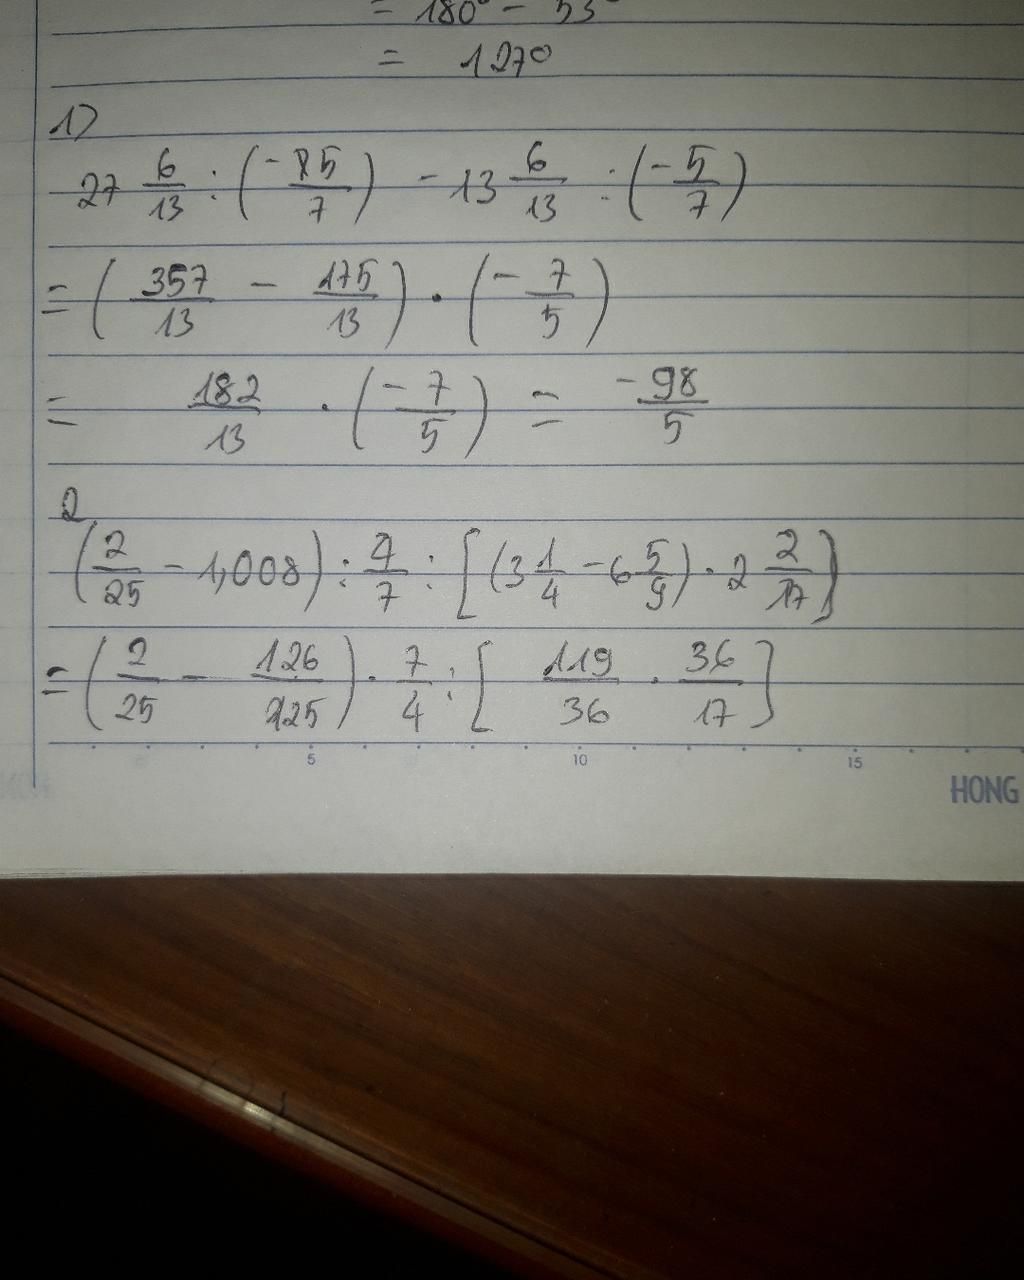 = 180° - 53°
= 127°
1)
27 6/13 : (-85/7) - 13 6/13 : (-5/7)
= (357/13 - 175/13) · (-7/5)
= 182/13 · (-7/5) = -98/5
2
(2/25 - 1,008) : 4/7 : [(3 1/4 - 6 5/9) · 2 2/17]
= (2/25 - 126/125) · 7/4 : [119/36 · 36/17]
5 10 15
HONG